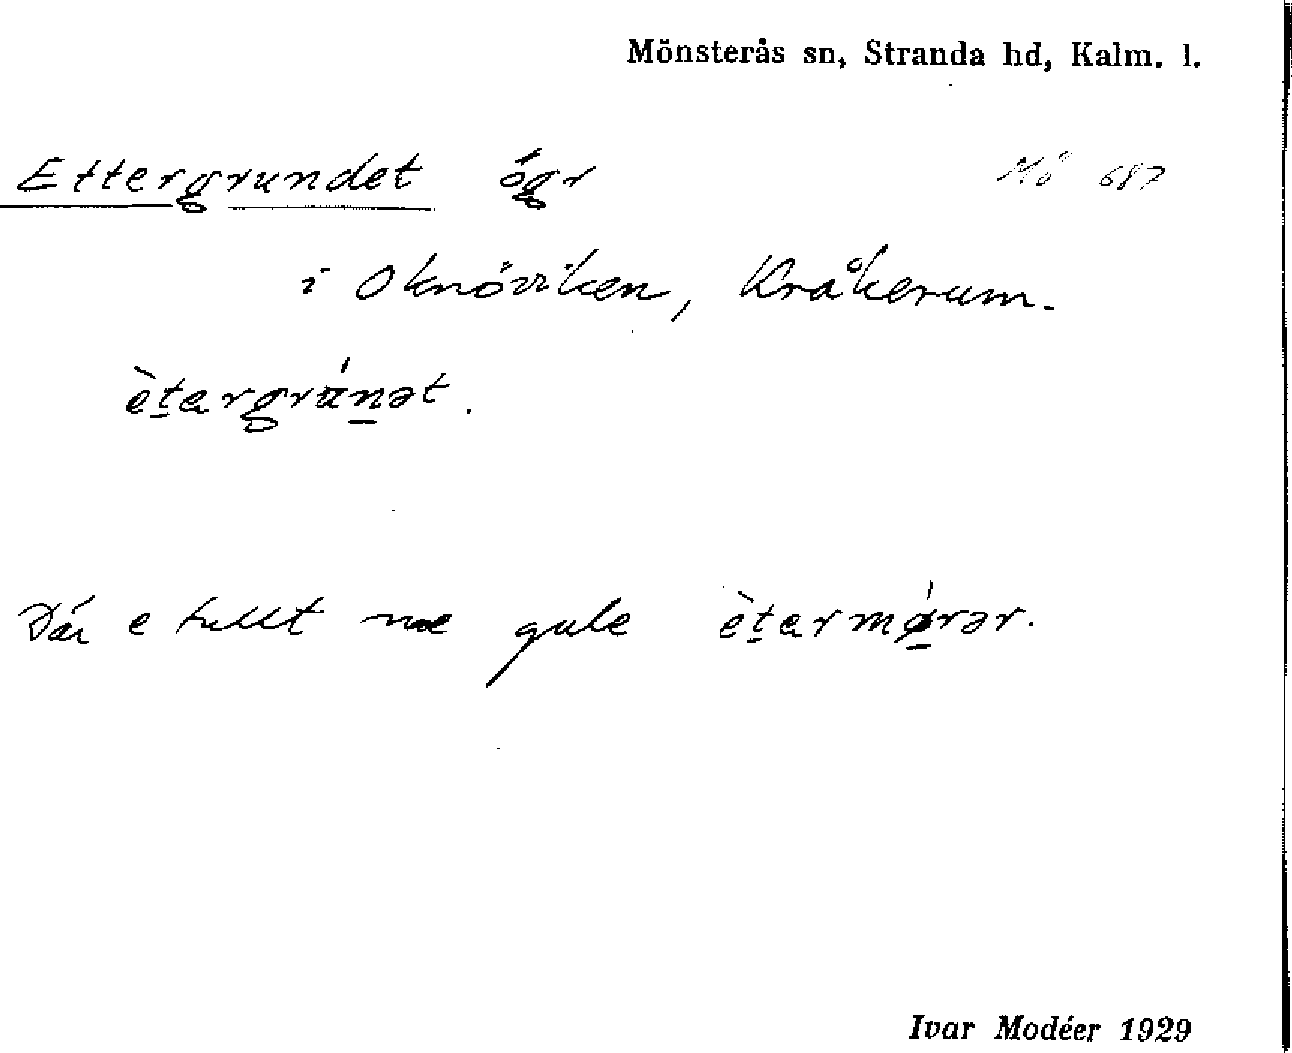 Mönsterås sn, Stranda hd, Kalm. l.
Ettergrundet ögr Mö 687
i Oknöviken, Kråkerum.
ètargrúnət.
Där e fullt mæ gule ètarmǿrər.
Ivar Modéer 1929